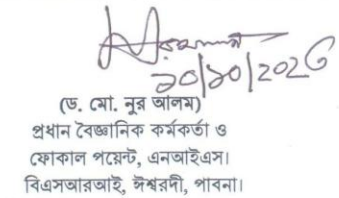 ১০/১০/202৫
(ড. মো. নুর আলম)
প্রধান বৈজ্ঞানিক কর্মকর্তা ও
ফোকাল পয়েন্ট, এনআইএস।
বিএসআরআই, ঈশ্বরদী, পাবনা।